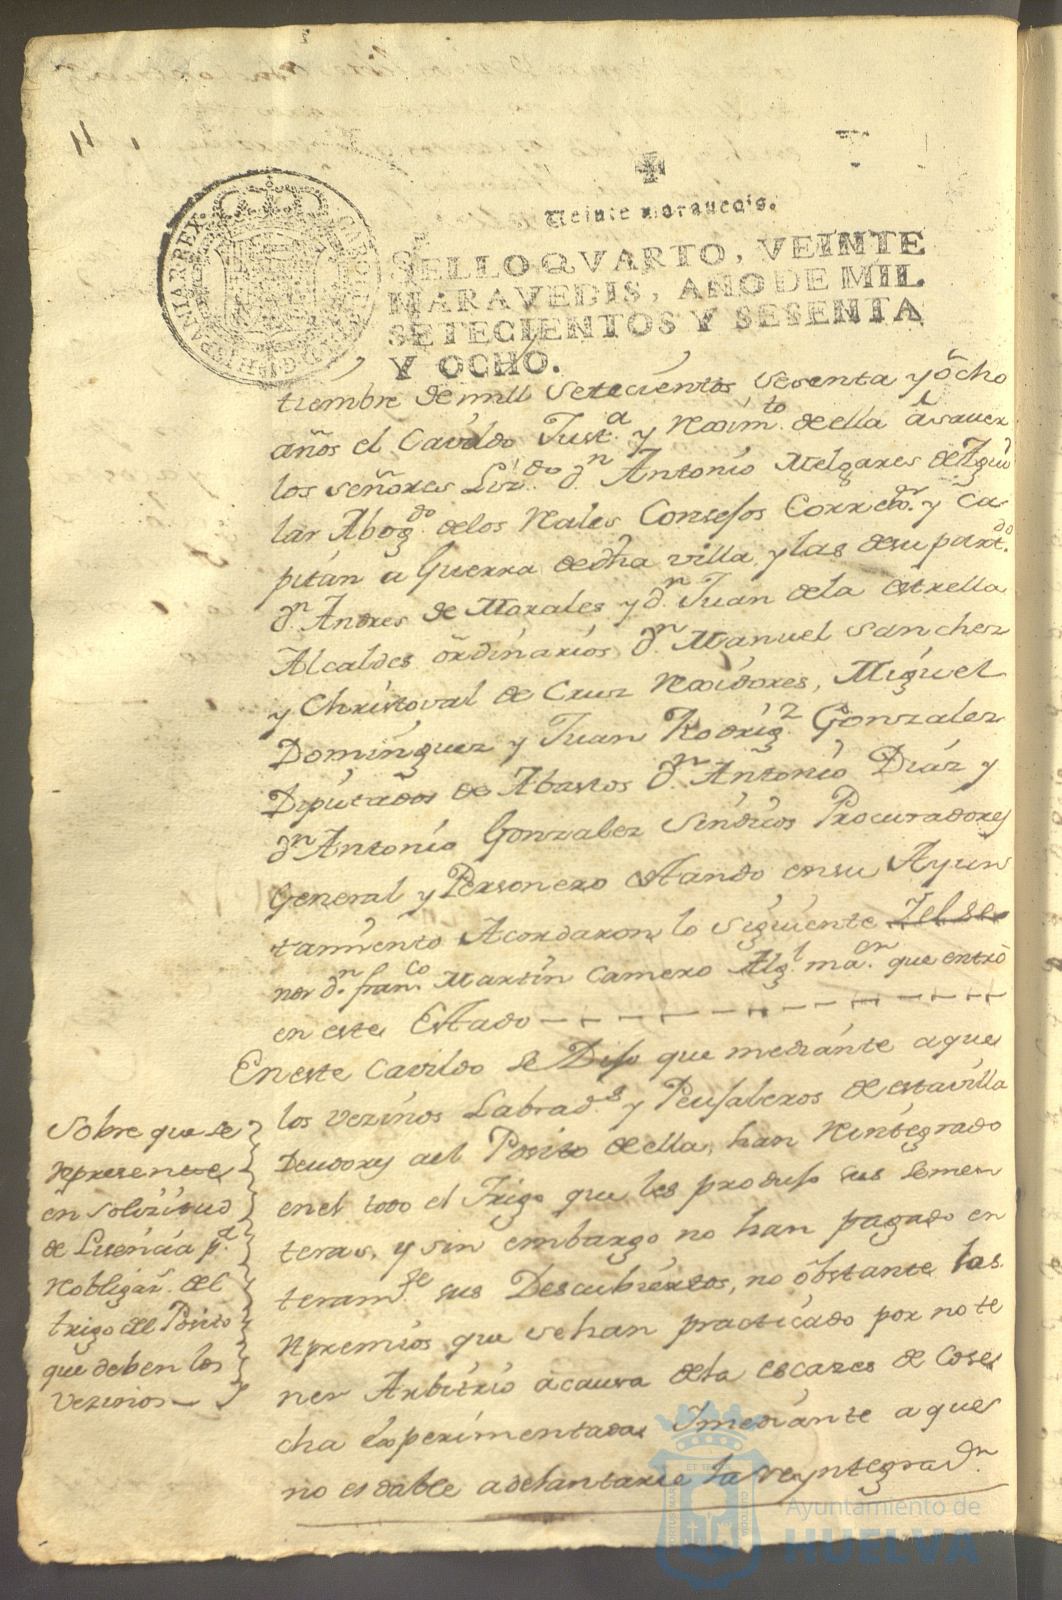 Veinte marauedis.
SELLO QVARTO, VEINTE
MARAVEDIS, AÑO DE MIL
SETECIENTOS Y SESENTA
Y OCHO.
tiembre de mill setecientos sesenta y ôcho
años el Cavildo Just.a y Reximto. de ella â saver
los señores Lizdo. dn. Antonio Melgares de Agui
lar Abogdo. de los Reales Consejos Correxor. y Ca
pitán a Guerra de dha villa y las de su partdo.
dn. Andres de Morales y dn. Juan de la estrella
Alcaldes ôrdinarios, dn. Manuel Sanchez
y Christoval de Cruz Rexidores, Miguel
Dominguez y Juan Rodrigz. Gonzalez
Diputados de Abastos dn. Antonio Diaz y
dn. Antonio Gonzalez Sindicos Procuradores
General y Personero estando en su Ayun
tamiento Acordaron lo siguiente Y el se
ñor dn. franco. Martin Camero Algl. maor. que entrò
en este Estado
En este Cavildo se Dijo que mediante a que
los vezinos Labrads. y Peujaleros de esta villa
Deudores al Posito de ella, han Reintegrado
en el todo el Trigo que les produjo sus semen
teras, y sin embargo no han pagado en
teramte. sus Descubiertos, no ôbstante los
Apremios que se han practicado por no te
ner Arbitrio à causa de la escazes de Cose
cha experimentada, Y mediante a que
no es dable adelantarse la reyntegraon.
Sobre que se
represente
en solizitud
de Lizencia pa.
Robligar. del
trigo del Posito
que deben los
vezinos
Ayuntamiento de
HUELVA